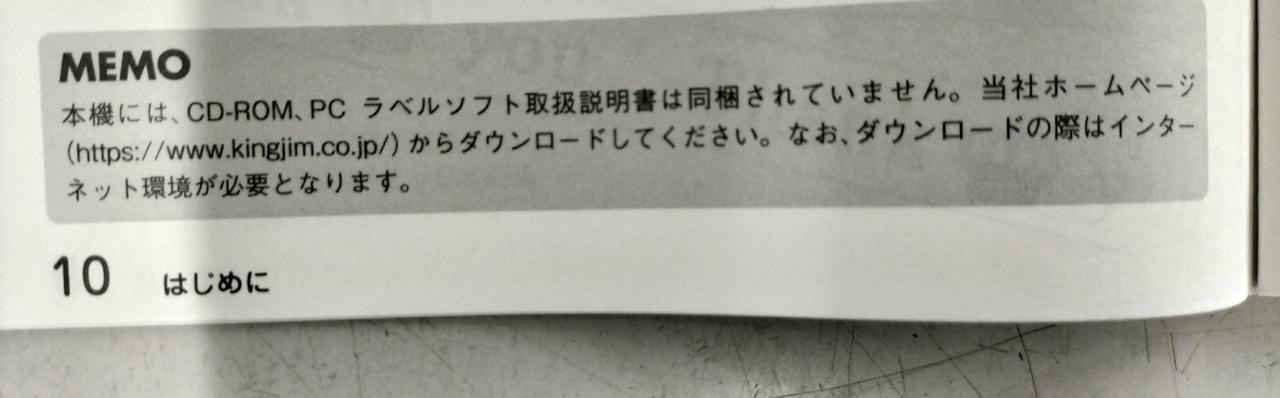 MEMO
本機には、CD-ROM、PC ラベルソフト取扱説明書は同梱されていません。当社ホームページ
(https://www.kingjim.co.jp/) からダウンロードしてください。なお、ダウンロードの際はインター
ネット環境が必要となります。
10 はじめに